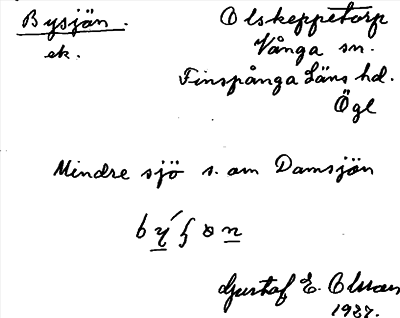 Bysjön.
ek.
Olskeppetorp
Vånga sn.
Finspånga Läns hd.
Ögl
Mindre sjö s. om Damsjön
Gustaf E. Olsson
1927.